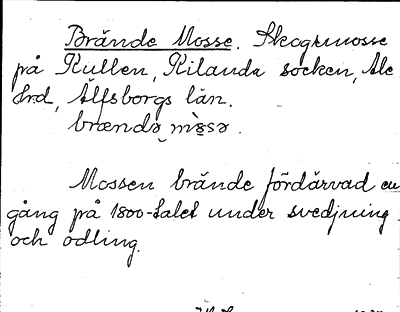 Brände Mosse. Skogsmosse
på Kullen, Kilanda socken, Ale
Hrd, Älfsborgs län.
brændə mɔsə.
Mossen brände fördärvad en
gång på 1800-talet under svedjning
och odling.